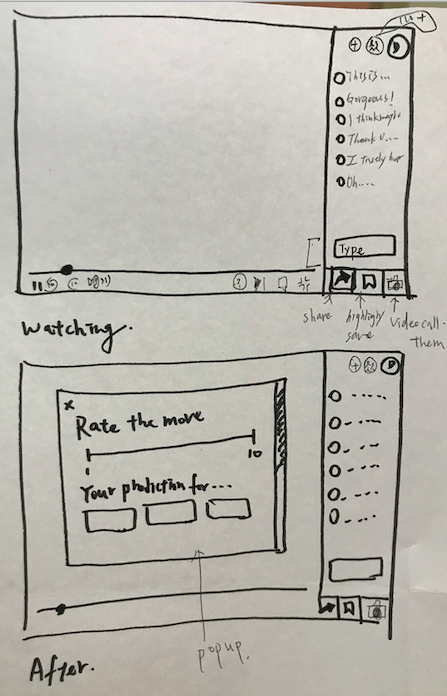 This is...
Gorgeous!
I think maybe
Thank u....
I truely hope
Oh....
Type
share
highlight/
save
video call
them
Watching.
x
Rate the move
1
10
Your prediction for....
popup.
After.